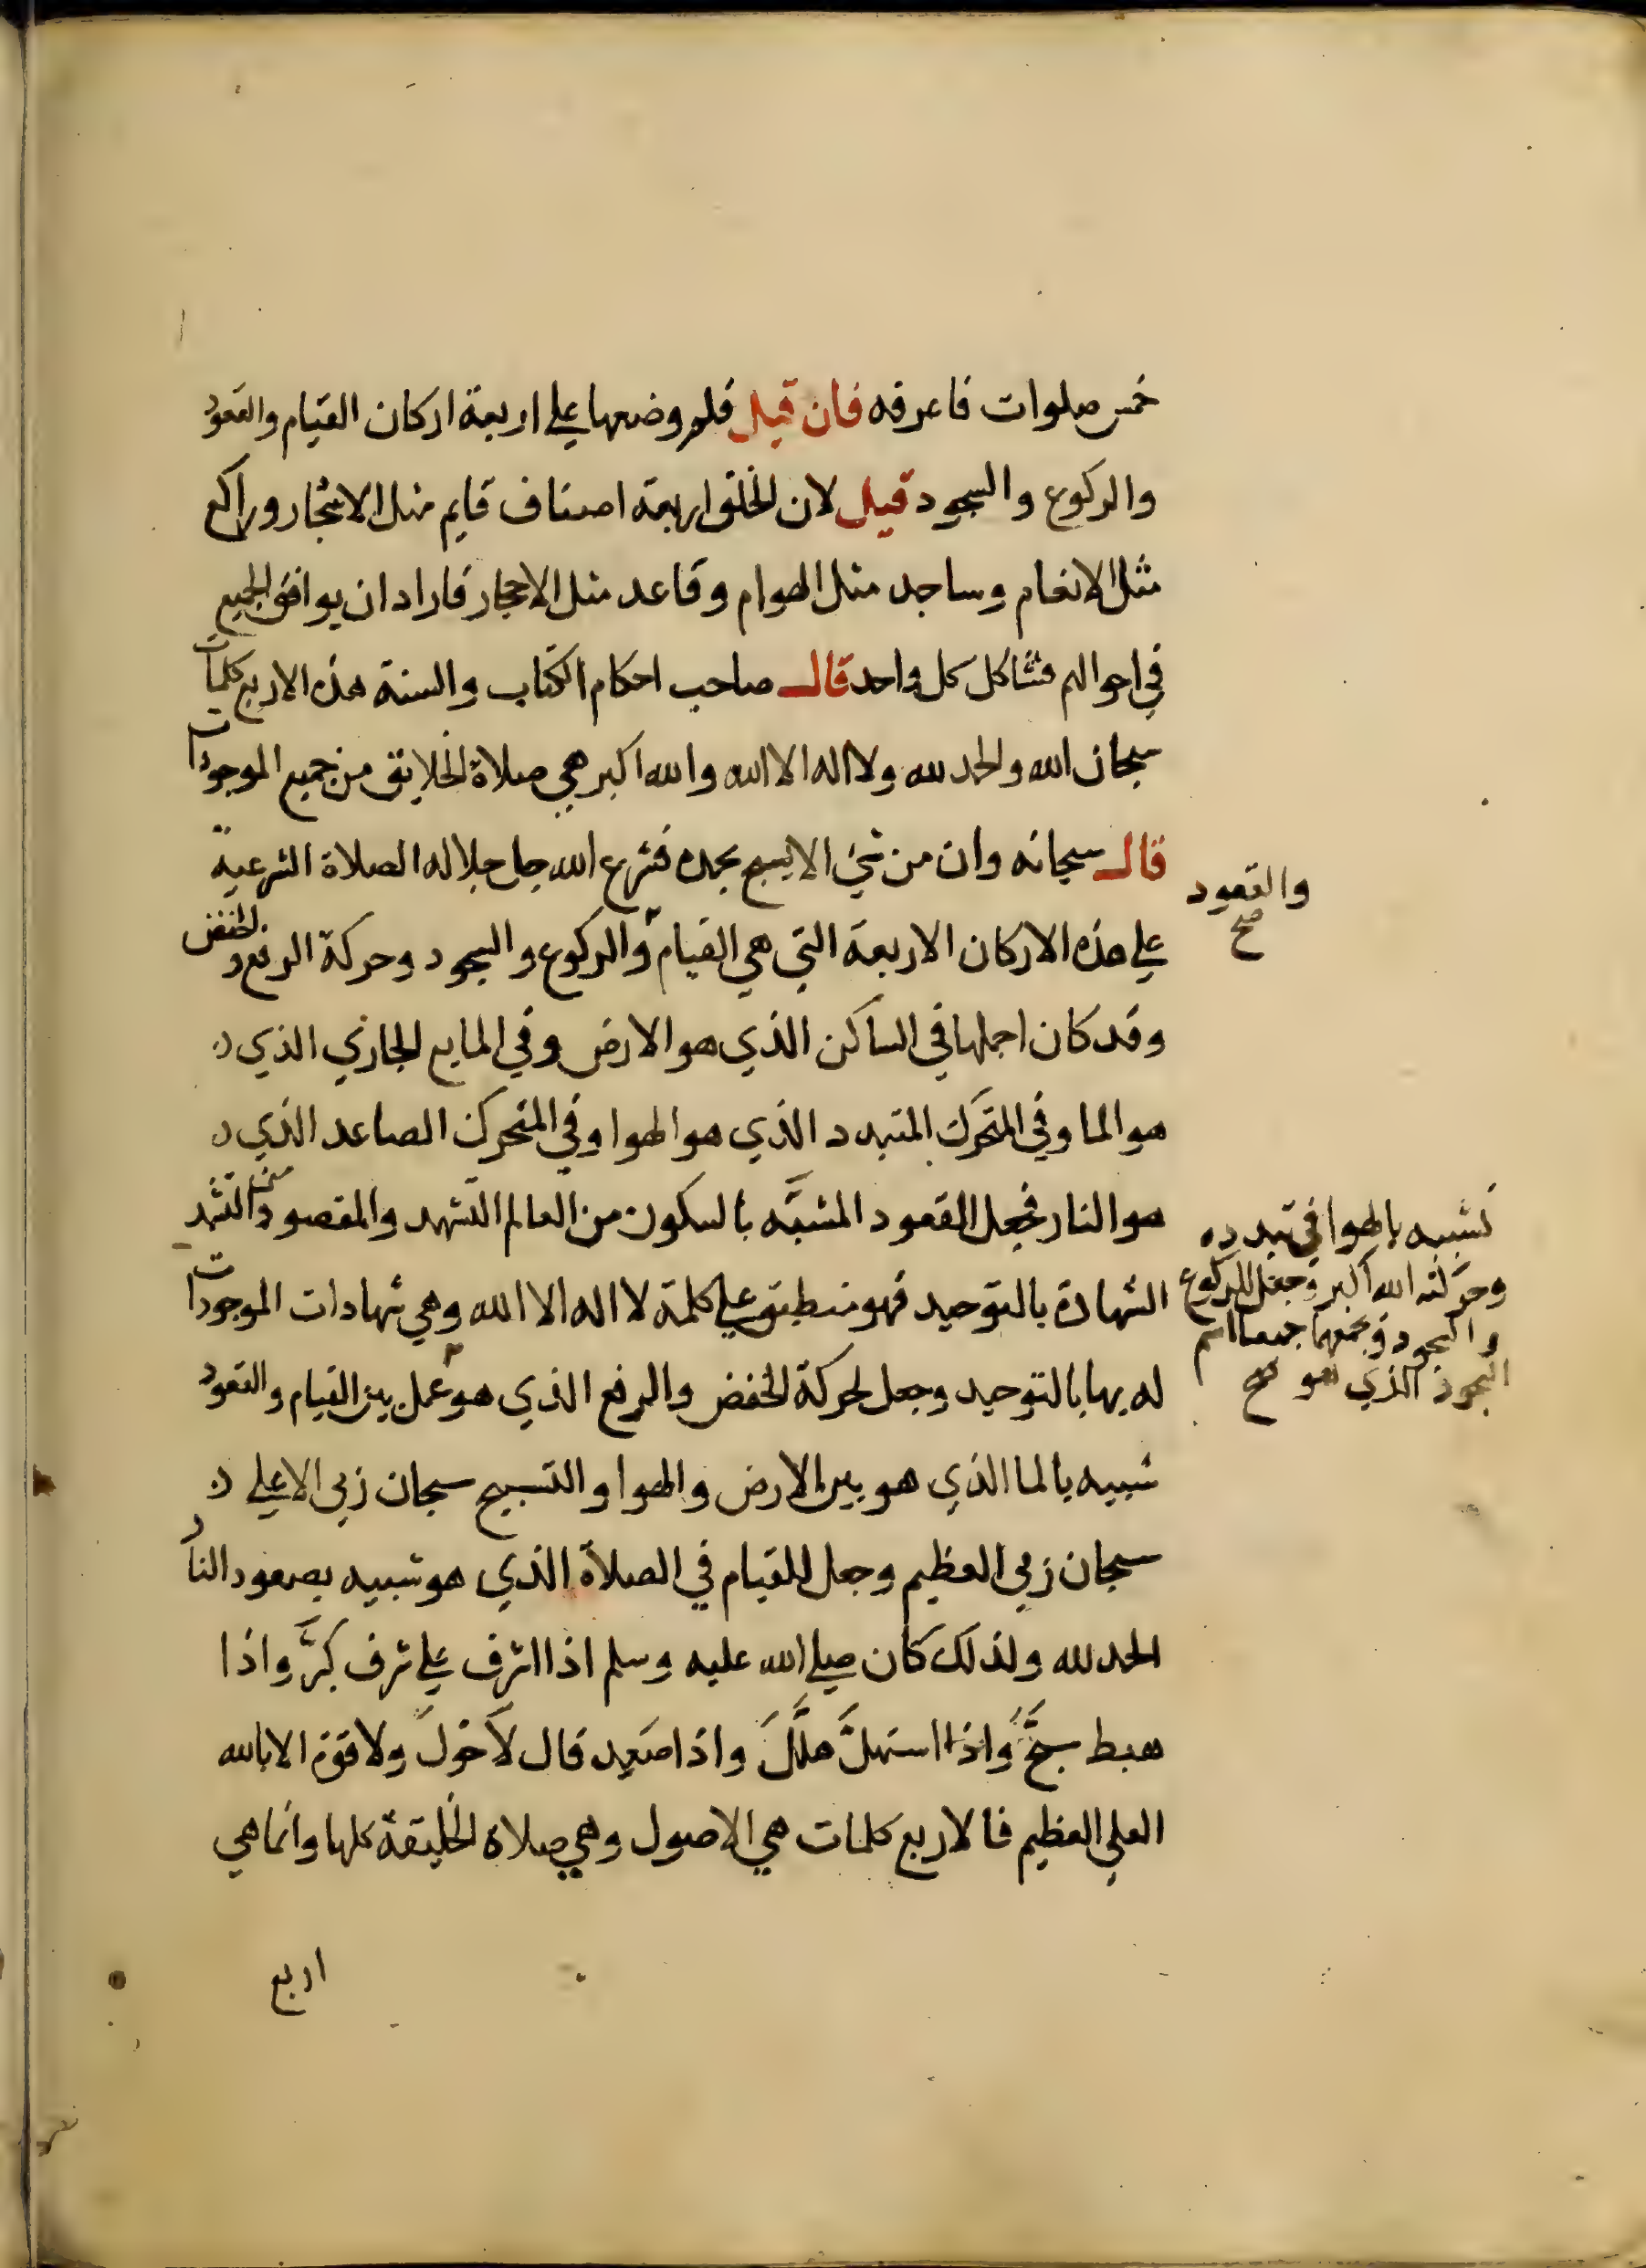 خمس صلوات فاعرفه فان قيل فلم وضعها على اربعة اركان القيام والقعود
والركوع والسجود قيل لان الخلق اربعة اصناف قايم مثل الاشجار وراكع
مثل الانعام وساجد مثل الهوام وقاعد مثل الاحجار فاراد ان يوافق الجميع
في احوالهم فشاكل كل واحد قال صاحب احكام الكتاب والسنة هذه الاربع كلمات
سبحان الله والحمد لله ولا اله الا الله والله اكبر هي صلاة الخلايق من جميع الموجودات
قال سبحانه وان من شي الا يسبح بحمده فشرع الله جل جلاله الصلاة الشرعية
على هذه الاركان الاربعة التي هي القيام والركوع والسجود وحركة الرفع والخفض
والقعود
صح
وقد كان اجملها في الساكن الذي هو الارض وفي المايع الجاري الذي
هو الما وفي المتحرك المتبدد الذي هو الهوا وفي المتحرك الصاعد الذي
هو النار فجعل القعود المشبَّه بالسكون من العالم التشهد والمقصود من التشهد
الشهادة بالتوحيد فهو منطبق على كلمة لا اله الا الله وهي شهادات الموجودات
له بها بالتوحيد وجعل لحركة الخفض والرفع الذي هو عمل بين القيام والقعود
تشبيه بالهوا في تبدده
وحركته الله اكبر وجعل للركوع
والسجود ويجمعهما جميعا اسم
السجود الذي هو صح
شبيه بالما الذي هو بين الارض والهوا والتسبيح سبحان ربي الاعلى
سبحان ربي العظيم وجعل للقيام في الصلاة الذي هو شبيه بصعود النار
الحمد لله ولذلك كان صلى الله عليه وسلم اذا اشرف على شرف كبَّر واذا
هبط سبَّح واذا استهلَّ هلَّلَ واذا صَعِد قال لا حَولَ ولا قوة الا بالله
العلي العظيم فالاربع كلمات هي الاصول وهي صلاة الخليقة كلها وانما هي
اربع